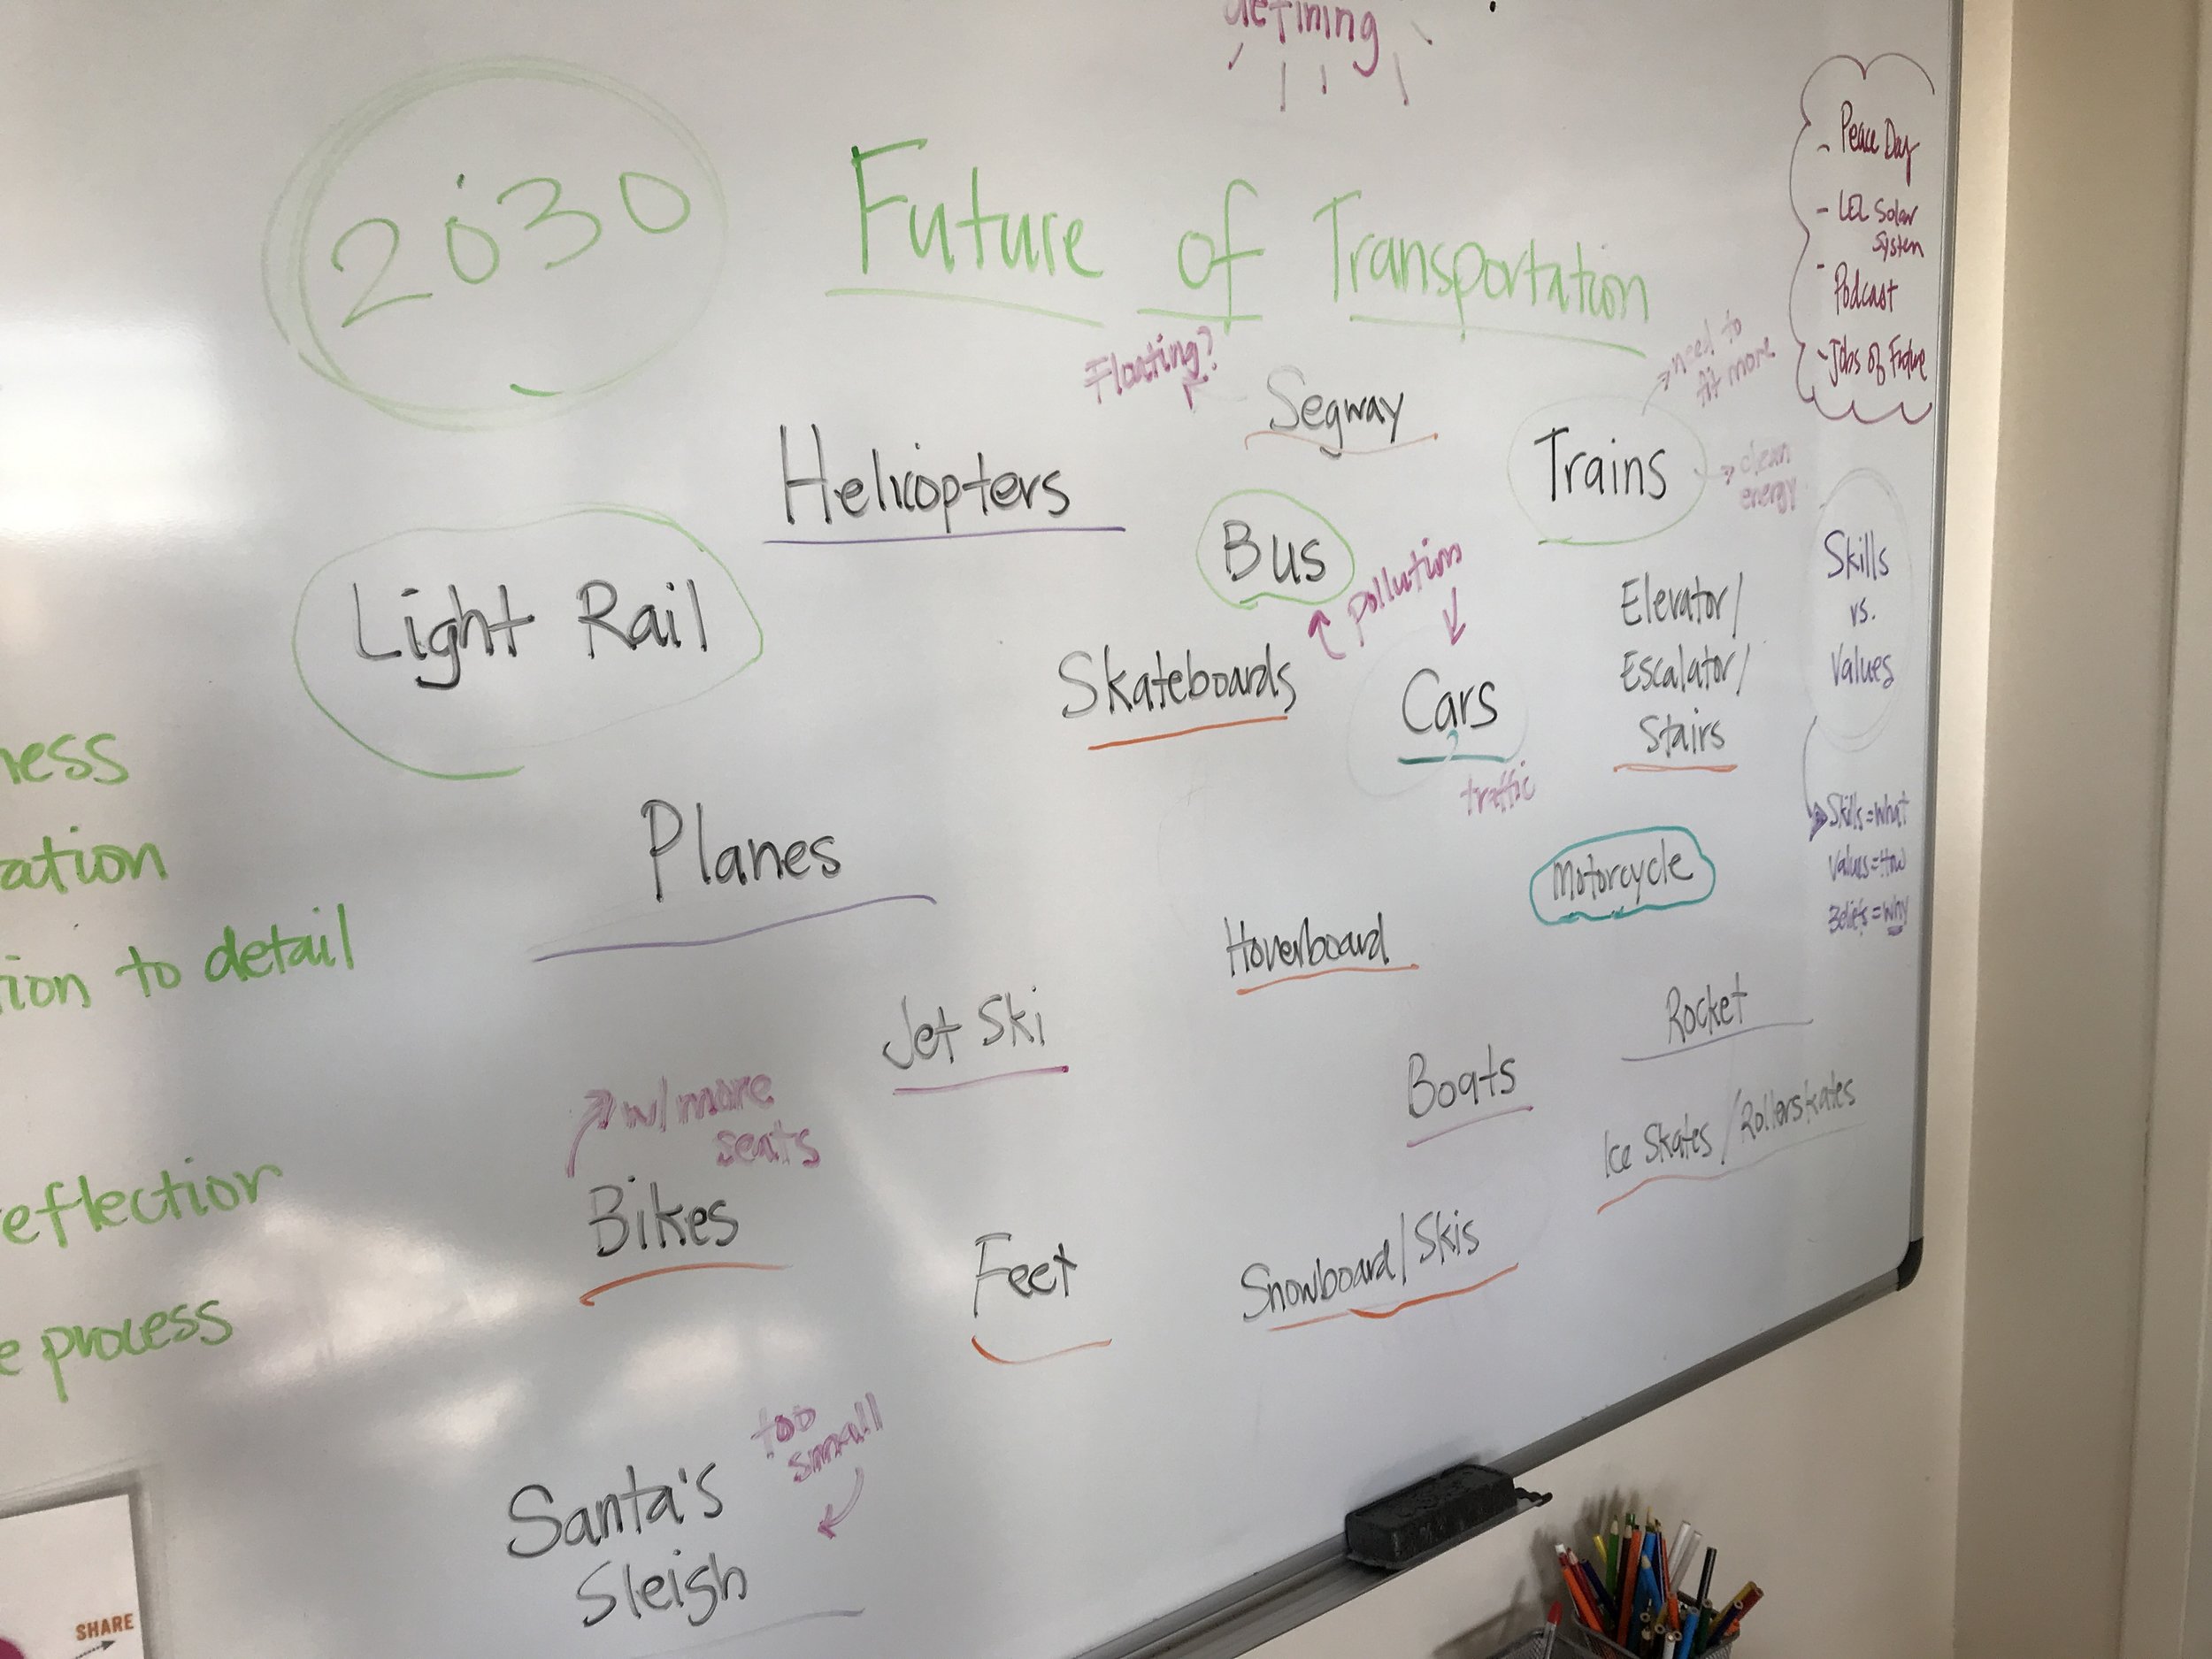 defining
2030
Future of Transportation
Floating?
Segway
need to
fit more
Trains
clean
energy
Helicopters
Bus
pollution
Light Rail
Skateboards
Cars
traffic
Elevator/
Escalator/
Stairs
Planes
Motorcycle
Hoverboard
Jet Ski
Rocket
Boats
w/ more
seats
Ice Skates / Rollerskates
Bikes
Feet
Snowboard/Skis
too
small
Santa's
Sleigh
- Peace Day
- Solar
System
- Podcast
- Jobs of Future
Skills
vs.
Values
Skills=What
Values=How
Beliefs=Why
ness
ation
tion to detail
eflection
e process
SHARE